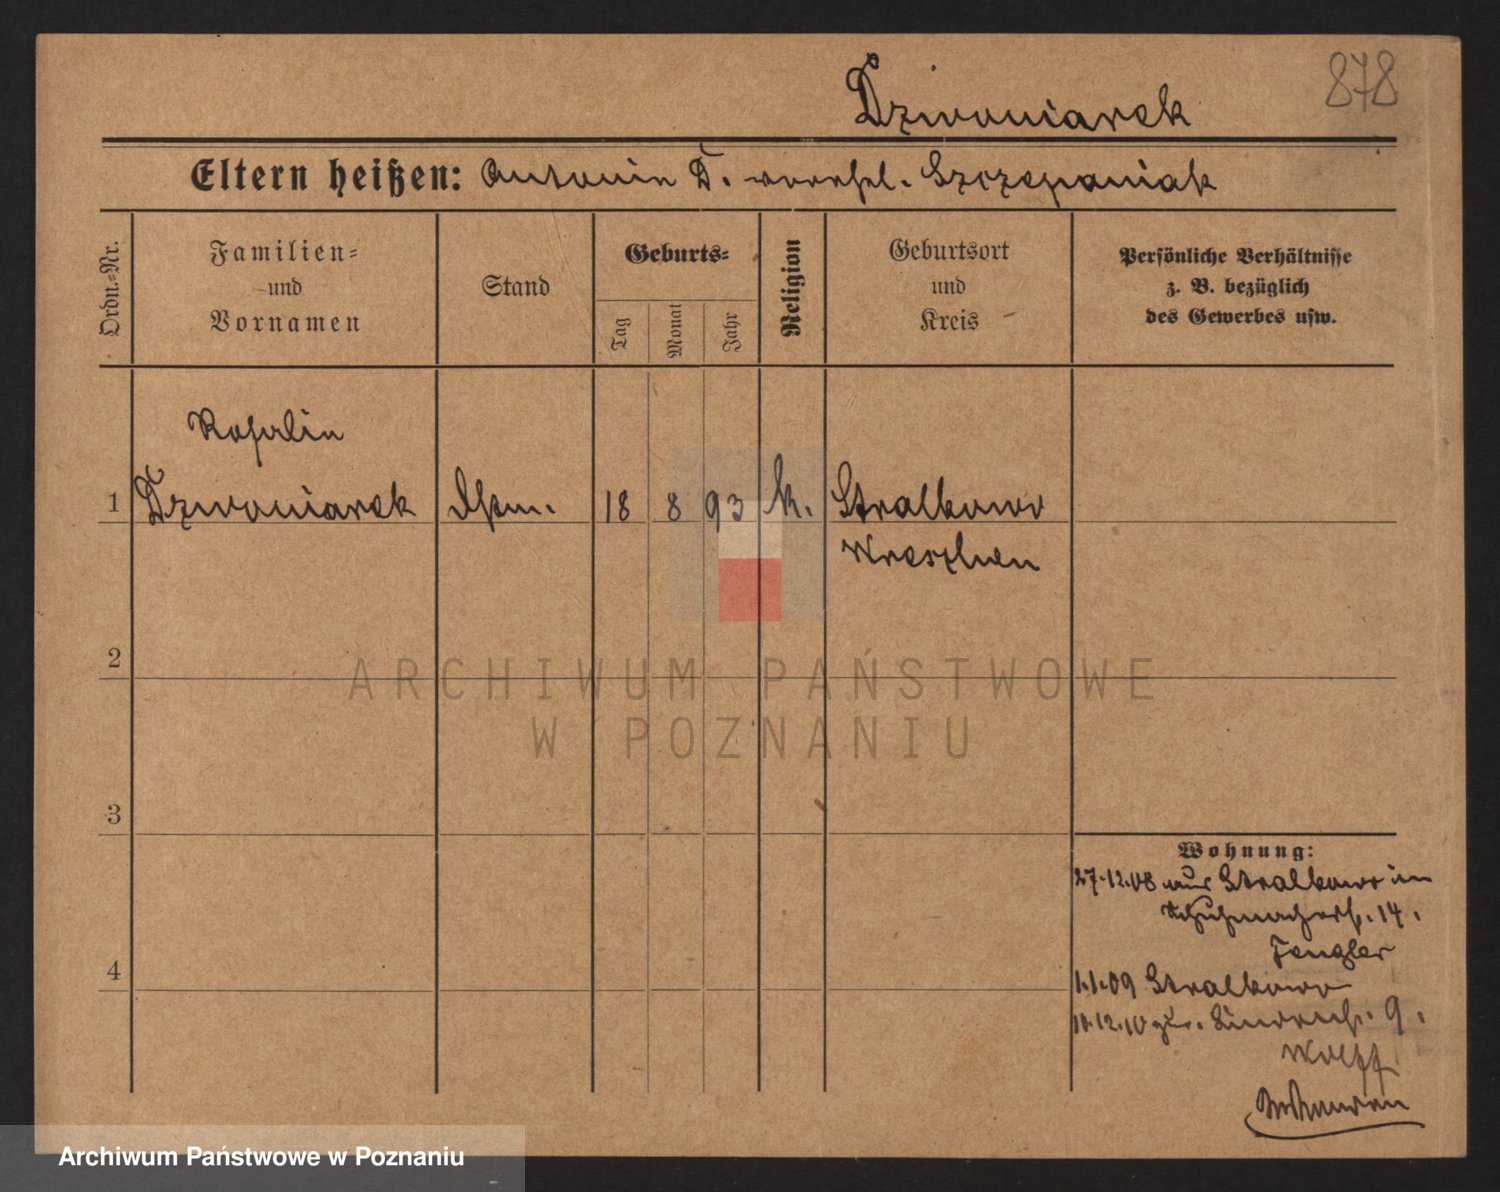 878
Dzwoniarek
Eltern heißen: Antonie D. verehel. Szczepaniak
Ordn.-Nr.
Familien-
und
Vornamen
Stand
Geburts-
Tag
Monat
Jahr
Religion
Geburtsort
und
Kreis
Persönliche Verhältnisse
z. B. bezüglich
des Gewerbes usw.
Rosalie
1 Dzwoniarek Dstm. 18 8 93 k. Stralkowo
Wreschen
2
3
4
Wohnung:
27.12.08 aus Stralkowo in
Schuhmacherstr. 14.
Fengler
1.1.09 Stralkowo
11.12.10 zur. 9.
Wolff
ARCHIWUM PAŃSTWOWE
W POZNANIU
Archiwum Państwowe w Poznaniu